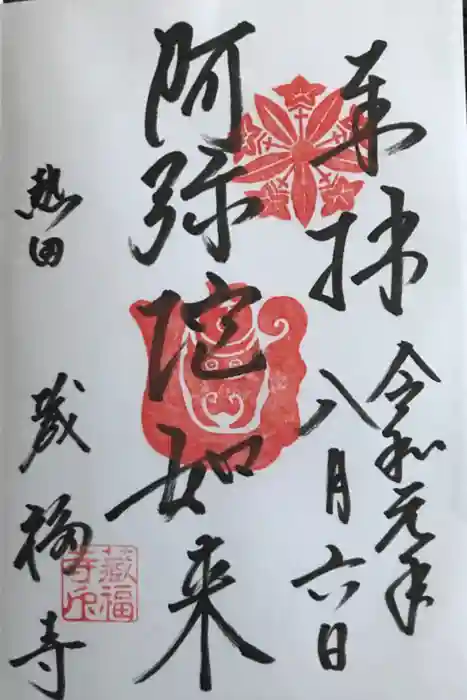 奉拝
令和元年
八月六日
阿弥陀如来
熱田
蔵福寺
蔵福
寺印